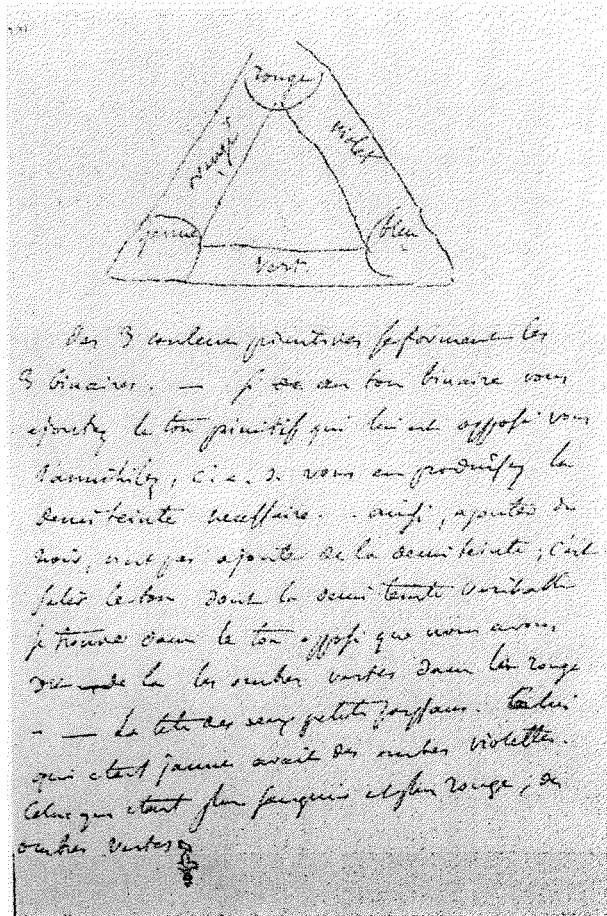 rouge
orangé
violet
jaune
bleu
vert
Des 3 couleurs primitives se forment les
3 binaires. — Si au ton binaire vous
ajoutez le ton primitif qui lui est opposé vous
l'annihilez, c.a.d. vous en produisez la
demi teinte necessaire. - ainsi, ajouter du
noir, n'est pas ajouter de la demi teinte, c'est
salir le ton dont la demi teinte veritable
se trouve dans le ton opposé que nous avons
dit — de la les ombres vertes dans le rouge
- — La tete des deux petits paysans. Celui
qui etait jaune avait des ombres violettes.
Celui qui etait plus sanguin et plus rouge, des
ombres vertes